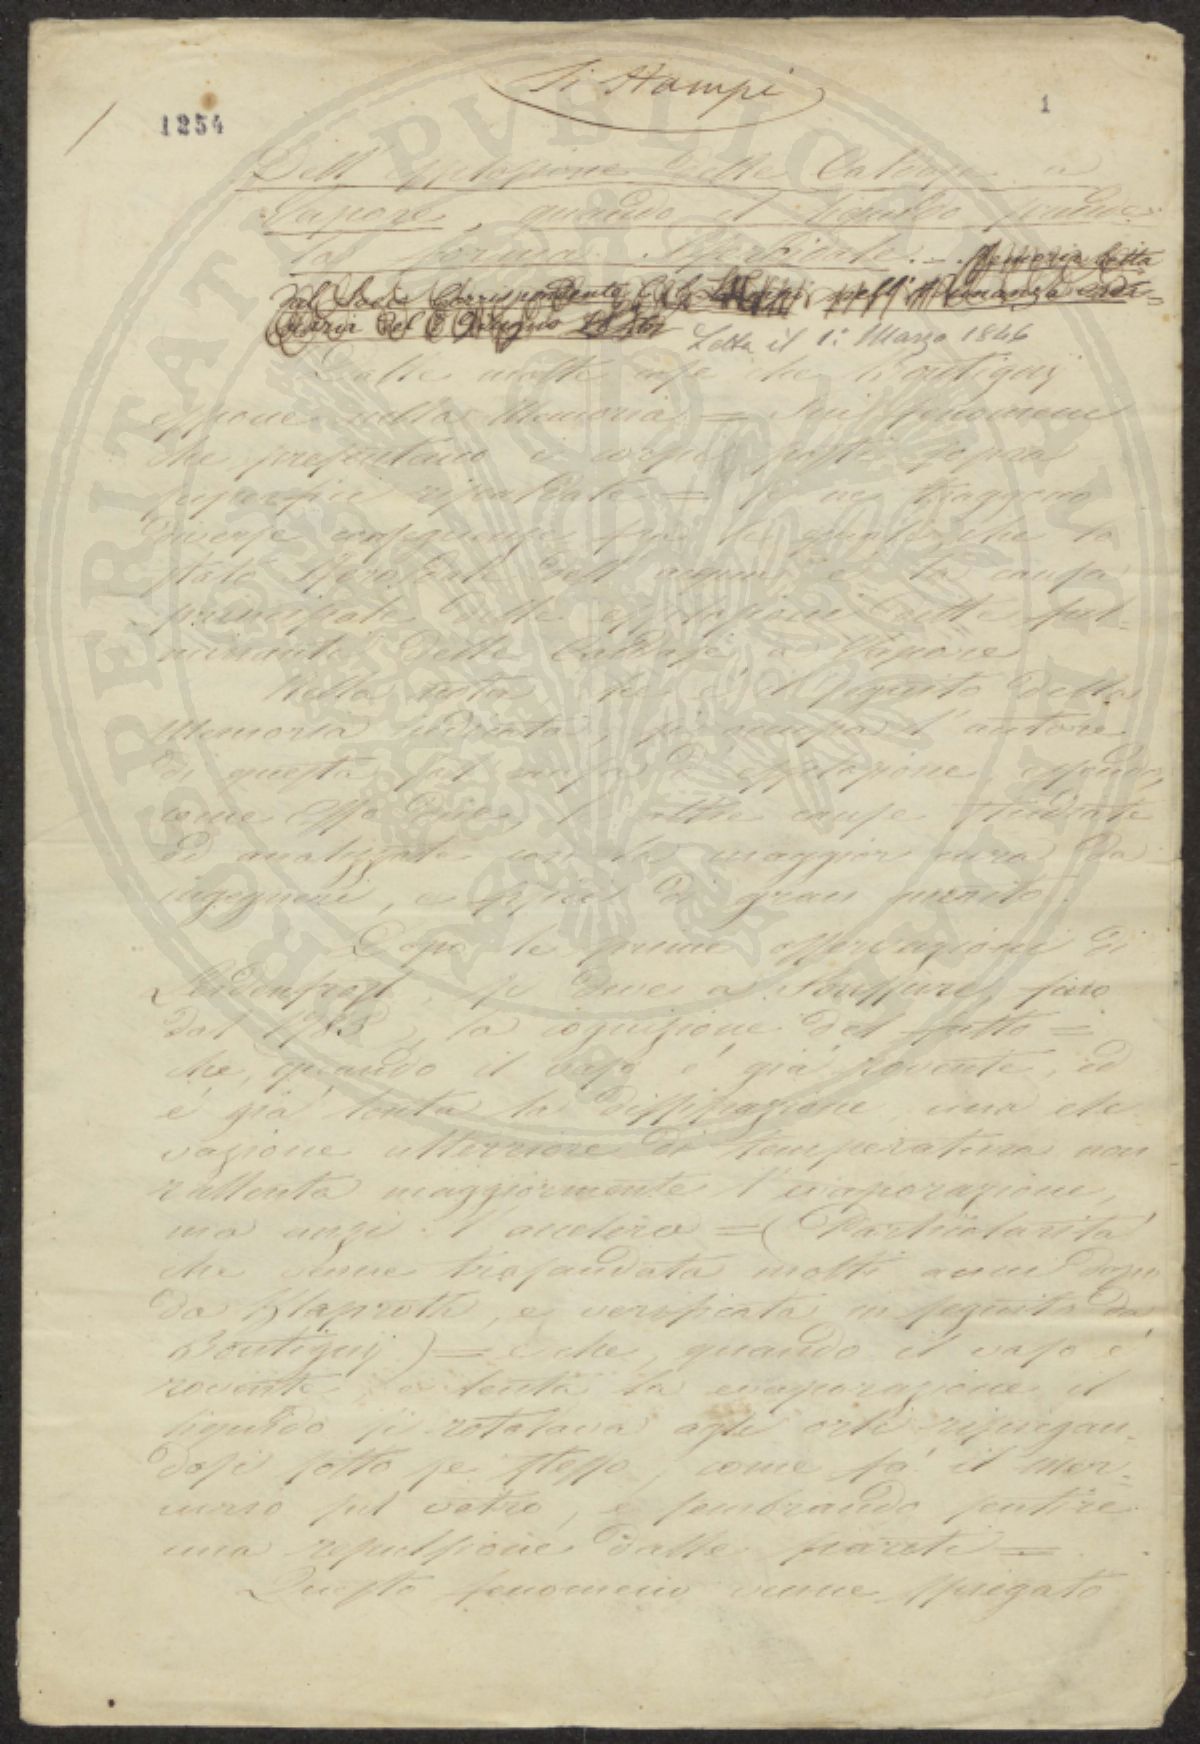 Si Stampi
1254
1
Dell' Esplosione delle Caldaje a
Vapore, quando il liquido prende
la forma Sferoidale. - Memoria letta
dal Socio Corrispondente nell' Adunanza ordi-
naria del Giugno
Letta il 1: Marzo 1846
Dalle molte cose che Boutigny
espone nella Memoria = Sui fenomeni
che presentano i corpi posti sopra
superficie riscaldate = se ne traggono
diverse conseguenze fra le quali, che lo
stato Sferoidale dell' acqua è la causa
principale delle esplosioni dette ful-
minanti delle Caldaje a Vapore
Nella nota che è il seguito della
Memoria indicata, si occupa l' autore
di questa sol causa d' esplosione, essendo,
come Esso dice, l' altre cause studiate
ed analizzate con la maggior cura da
ingegneri, e fisici di gran merito.
Dopo le prime osservazioni di
Leidenfrost, si deve a Saussure, fino
dal 1785, la cognizione del fatto =
che, quando il vaso è già rovente, ed
è già lenta la dissipazione una ele
vazione ulteriore di temperatura non
rallenta maggiormente l' evaporazione,
ma anzi l' accelera = (Particolarità
che venne trasandata molti anni dopo
da Klaproth, e verificata in seguito da
Boutigny) = e che, quando il vaso è
rovente, e lenta la evaporazione il
liquido si rotolava agli orli ripiegan-
dosi sotto se stesso, come fà il mer-
curio sul vetro, e sembrando sentire
una repulsione dalle pareti =
Questo fenomeno venne spiegato